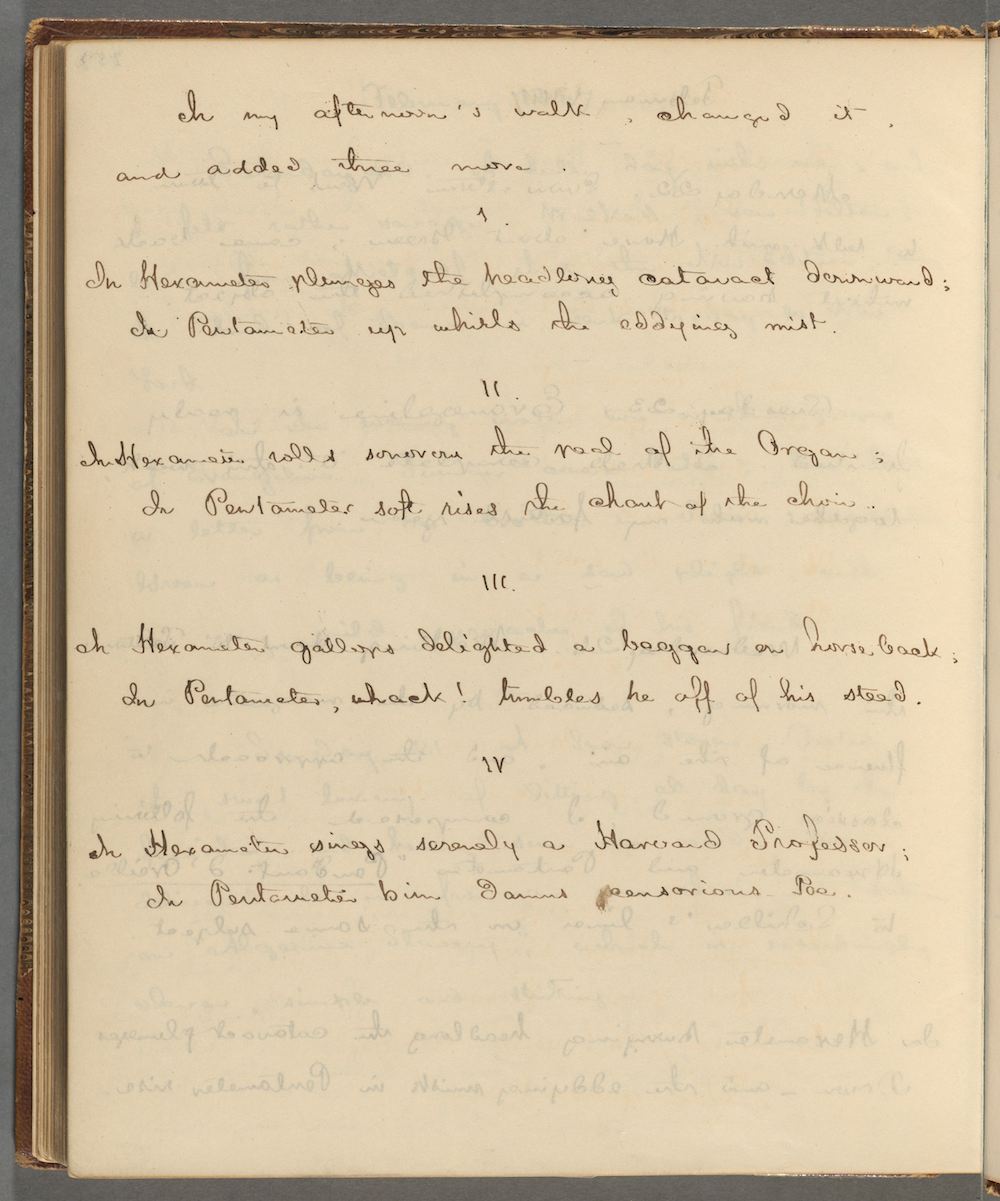 In my afternoon's walk, changed it,
and added three more.
I.
In Hexameter plunges the headlong cataract downward;
In Pentameter up whirls the eddying mist.
II.
In Hexameter rolls sonorous the peal of the Organ;
In Pentameter soft rises the chant of the choir.
III.
In Hexameter gallops delighted a beggar on horseback;
In Pentameter, whack! tumbles he off of his steed.
IV
In Hexameter sings serenely a Harvard Professor;
In Pentameter him damns censorious Poe.